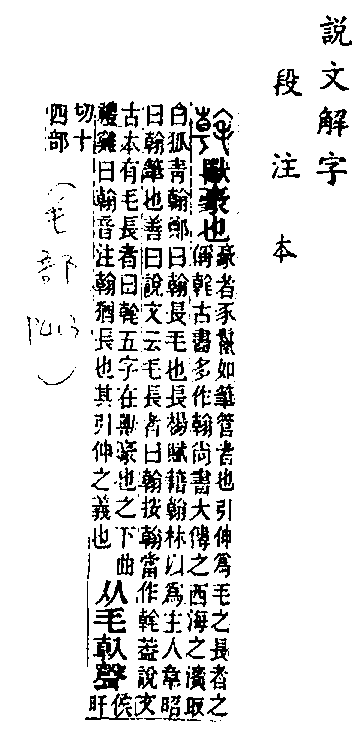 說文解字
段注本
獸豪也
豪者豕鬣如筆管者也引伸爲毛之長者之
偁㲦古書多作翰尚書大傳之西海之濱取
白狐青翰鄭曰翰長毛也長楊賦藉翰林以爲主人韋昭
曰翰筆也善曰說文云毛長者曰翰按翰當作㲦葢說文
古本有毛長者曰㲦五字在獸豪也之下曲
禮雞曰翰音注翰猶長也其引伸之義也
从毛倝聲
侯旰
切十
四部
（毛部